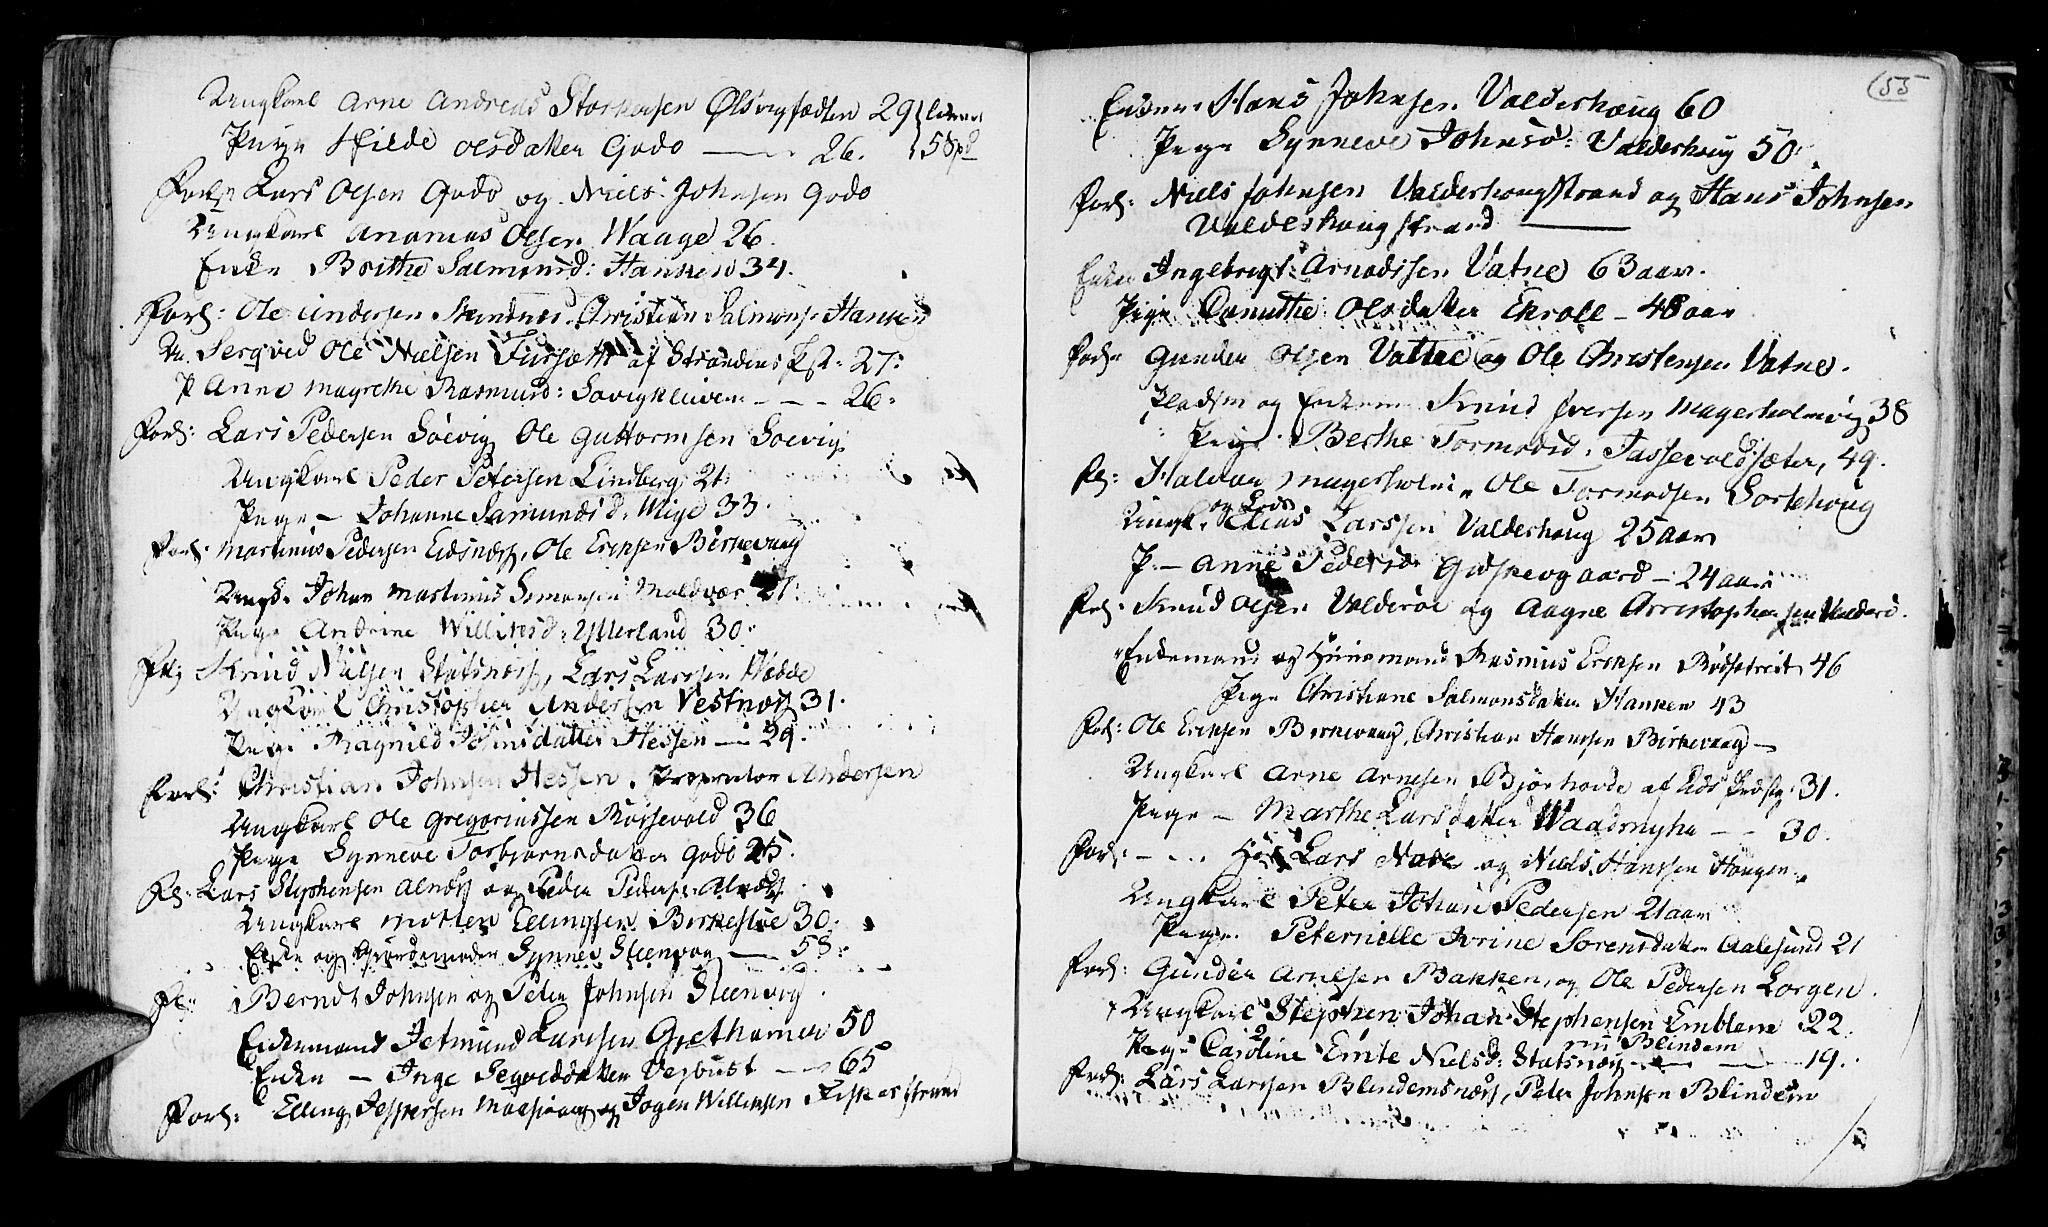 Ungkarl Arne Andreas Storkersen Ølsvigsædten 29
Pige Hilde Olsdatter Godø — 26. 58
Forl: Lars Olsen Godø og Niels Johnsen Godø
Ungkarl Ananias Olsen Waage 26
Enke Brithe Salmonsd: Hanken 34.
Forl: Ole Andersen Christian Salmons: Hanken
U. Ole Nielsen Fursætt af Strandens 27:
P Anne Magrethe Rasmusd: Søvigkleiven - - - 26:
Forl: Lars Pedersen Søevig Ole Guttormsen Søevig
Ungkarl Peder Petersen Lindberg 21
Pige – Johanne Samundsd: 33.
Forl: Martinus Pedersen Eidsnæss, Ole Ericksen Birkevaag
Ungk: Johan Martinus Simonsen Moldvær 27:
Pige Andrine Willumsd: Ytterland 30:
Forl: Knud Nielsen Statsnæss, Lars Larssen
Ungkarl Christopher Andersen Vestnæss 31.
Pige Ragnild Johnsdatter Hessen — 29.
Forl: Christian Johnsen Hessen, Andersen
Ungkarl Ole Gregoriussen Røssevold 36
Pige Synneve Torbjørnsdatter Godø 25.
Fl: Lars Stephensen Alnæss og Peder Peders: Alnæss
Ungkarl Morten Ellingsen Birkestøe 30:
Enke og Synnev Steenvog — 58:
Fl: Berndt Johnsen og Peter Johnsen Steenvog
Enkemand Jetmund Larssen Grethamer 50
Enke – Inge Vejbust — 65
Forl: Elling Jespersen og Jogen Willumsen Fiskerstrand
55
Enkem: Hans Johnsen Valderhaug 60
Pige Synneve Johnsd: Valderhoug 50.
Forl: Niels Johnsen Valderhougstrand og Hans Johnsen
Valderhougstrand —
Enkem Ingebrigt: Arnødssen Vatne 63 aar.
Pige Olsdatter Ekroll – 48 aar
Forl: Gunder Olsen Vattne og Ole Christensen Vatne.
og Enkem Knud Iversen Magerholmvig 38
Pige Berthe Tormodsd: 49.
Fl: Halvor Magerholm, Ole Tormodsen Sortehoug
Ungk: og Lods Elias Larssen Valderhoug 25 aar
P. – Anne Pedersd: Gidskevgaard – 24 aar
Forl: Knud Olsen Valderøe og Aagne Christophersen Valderö.
Enkemand og Huusmand Rasmus Ericksen 46
Pige Christiane Salmonsdatter Hanken 43
Forl: Ole Ericksen Birkevaag, Christian Hanssen Birkevaag –
Ungkarl Arne Arnesen Bjørhovde af Eids Præstg: 31.
Pige – Marthe Larsdatter Waadmyhr - - 30.
Forl: - - - Lars Nave og Niels Hanssen Haugen
Ungkarl Peter Johan Pedersen 21 aar
Pige. Peternille Ivrine Sørensdatter Aalesund 21
Forl: Gunder Arnesen Bakken, og Ole Pedersen Lorgen.
Ungkarl Stephen Johan Stephensen Emblem 22.
Pige Caroline Emte Nielsd: Statsnæss nu Blindem — 19.
Forl: Lars Larssen Blindemsnæss, Peter Johnsen Blindem